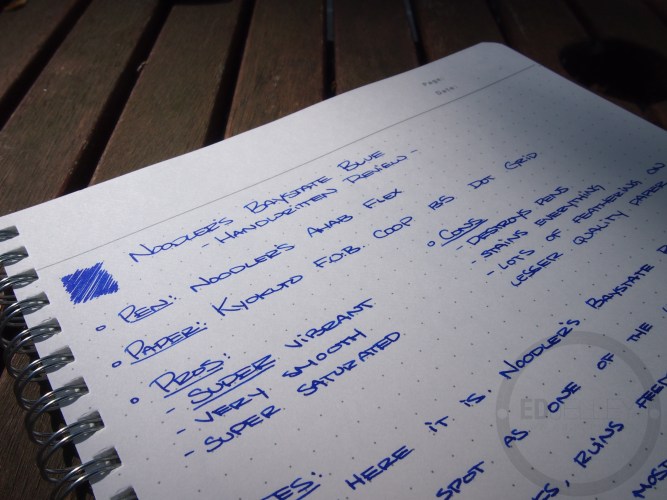 Page:
Date:
NOODLER'S BAYSTATE BLUE
- HANDWRITTEN REVIEW -
• PEN: NOODLER'S AHAB FLEX
• PAPER: KYOKUTO F.O.B. COOP B5 DOT GRID
• PROS:
- SUPER VIBRANT
- VERY SMOOTH
- SUPER SATURATED
• CONS
- DESTROYS PENS
- STAINS EVERYTHING
- LOTS OF FEATHERING ON
LESSER QUALITY PAPER
HERE IT IS. NOODLER'S BAYSTATE
SPOT AS ONE OF THE
RUINS